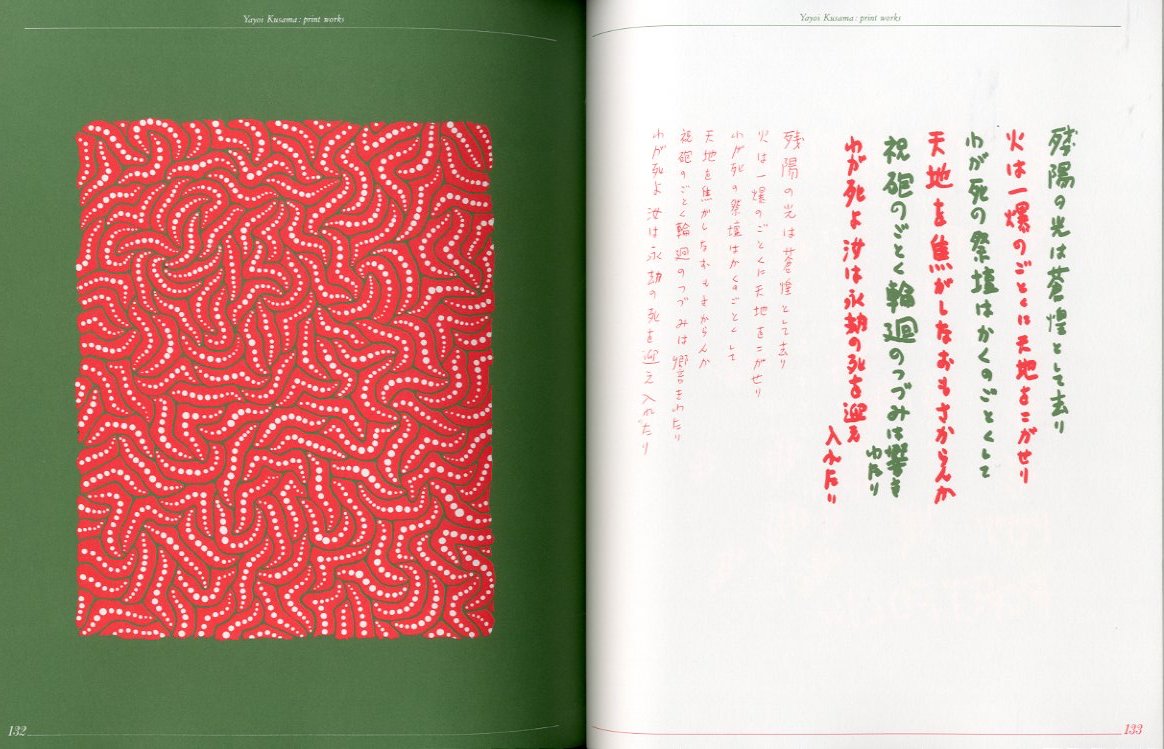 Yayoi Kusama: print works
132
Yayoi Kusama: print works
残陽の光は蒼煌として去り
火は一爆のごとくに天地をこがせり
わが死の祭壇はかくのごとくして
天地を焦がしなおもさからんか
祝砲のごとく輪廻のつづみは響きわたり
わが死よ汝は永劫の死を迎え入れたり
残陽の光は蒼煌として去り
火は一爆のごとくに天地をこがせり
わが死の祭壇はかくのごとくして
天地を焦がしなおもさからんか
祝砲のごとく輪廻のつづみは響きわたり
わが死よ汝は永劫の死を迎え入れたり
133